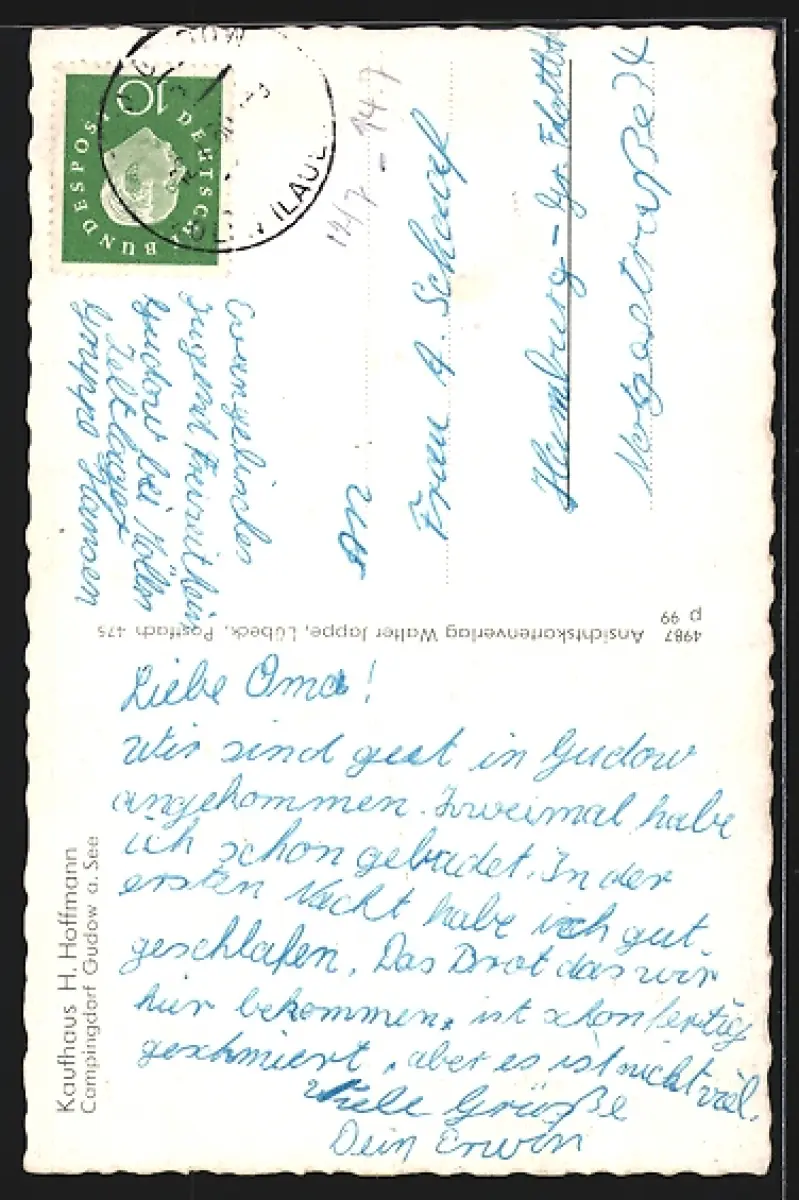 Liebe Oma!
Wir sind gut in Gudow
angekommen. Zweimal habe
ich schon gebadet. In der
ersten Nacht habe ich gut
geschlafen. Das Brot das wir
hier bekommen, ist schon fertig
geschmiert, aber es ist nicht viel.
Viele Grüße
Dein Erwin
Kaufhaus H. Hoffmann
Campingdorf Gudow a. See
4987 Ansichtskartenverlag Walter Jappe, Lübeck, Postfach 475
p 99
Evangelisches
Jugend
Gudow bei Mölln
Zeltlager
Gruppe Hansen
An
Frau A. Scharf
Hamburg - Gr. Flottbek
DEUTSCHE BUNDESPOST
10
14.7